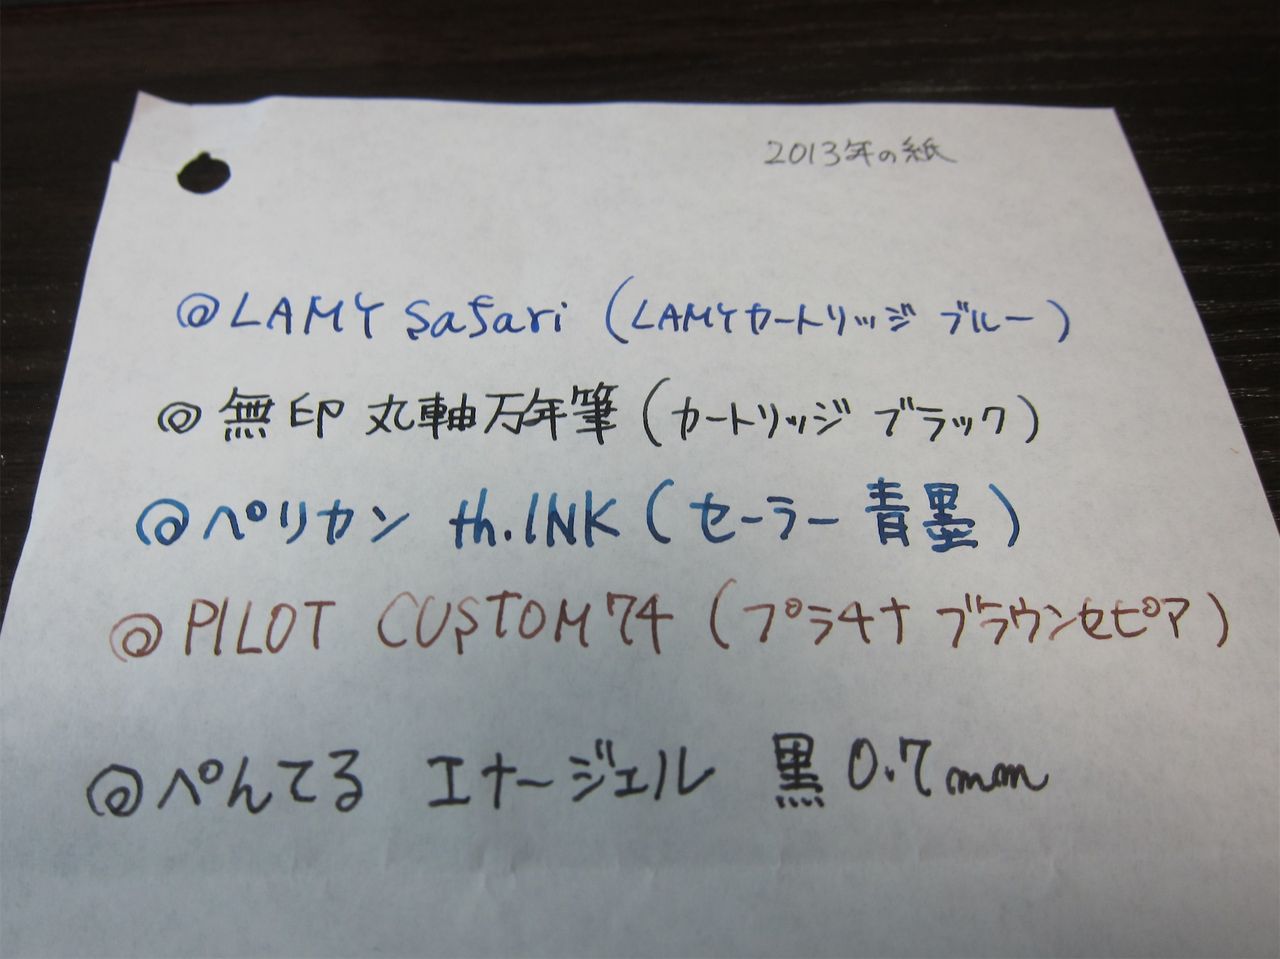 2013年の紙
◎LAMY Safari (LAMYカートリッジ ブルー)
◎無印 丸軸万年筆(カートリッジ ブラック)
◎ペリカン th.INK(セーラー 青墨)
◎PILOT CUSTOM74(プラチナ ブラウンセピア)
◎ぺんてる エナージェル 黒 0.7mm